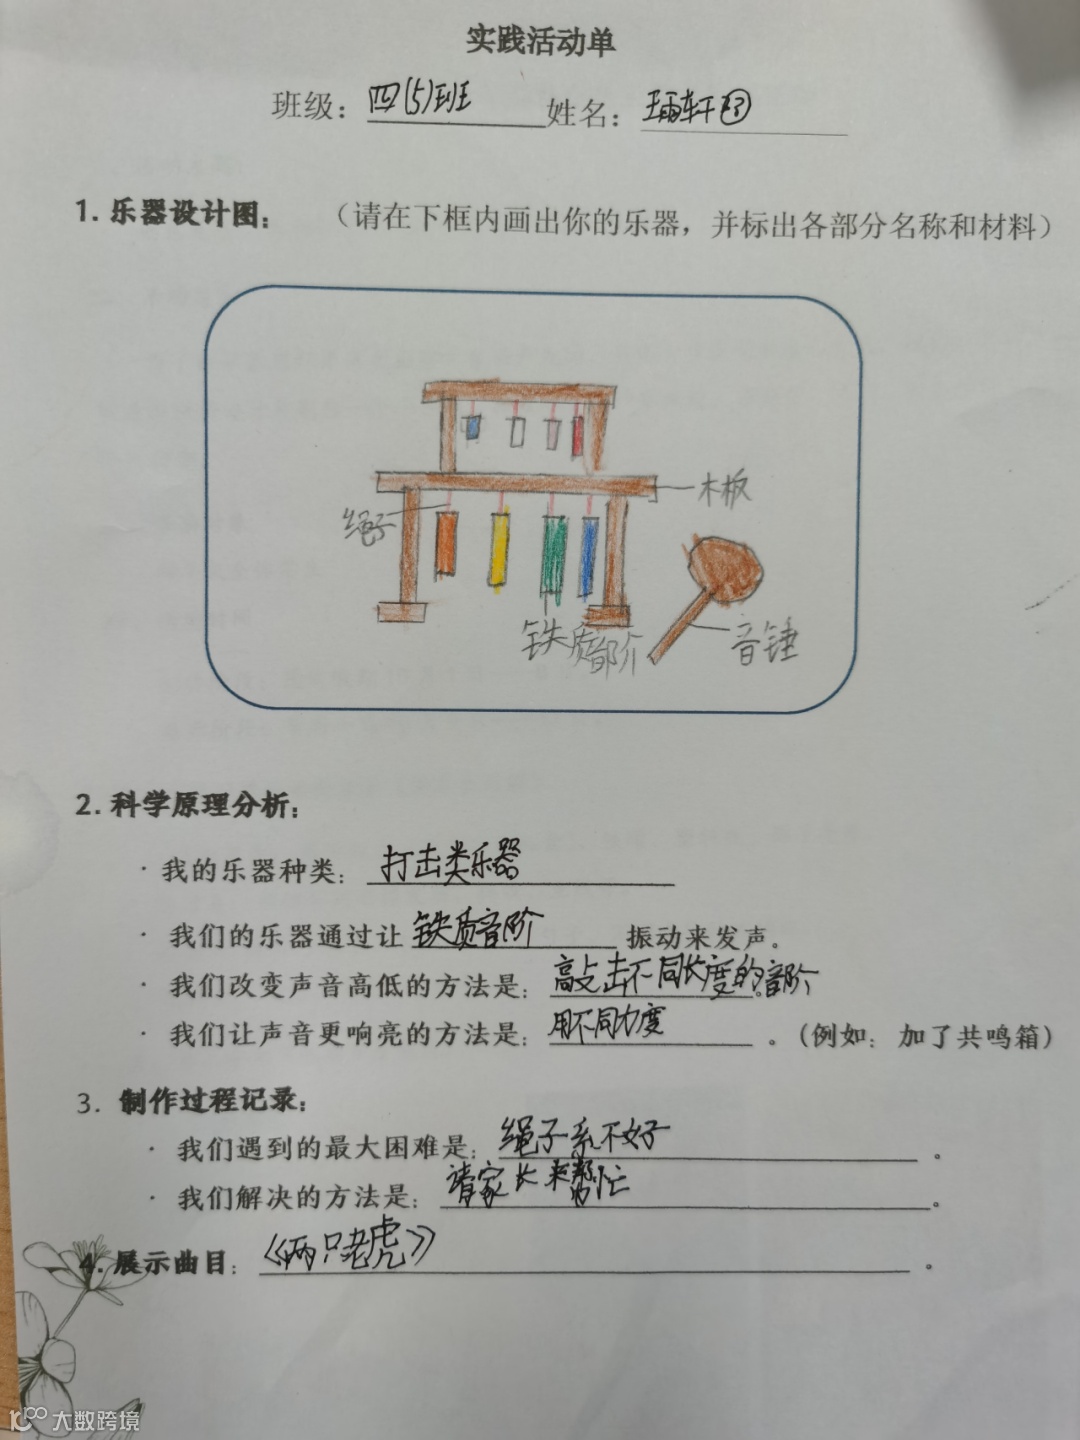 实践活动单
班级：四(5)班 姓名：轩
1. 乐器设计图：（请在下框内画出你的乐器，并标出各部分名称和材料）
木板
绳子
铁质音阶
音锤
2. 科学原理分析：
· 我的乐器种类：打击类乐器
· 我们的乐器通过让铁质音阶振动来发声。
· 我们改变声音高低的方法是：敲击不同长度的音阶。
· 我们让声音更响亮的方法是：用不同力度。（例如：加了共鸣箱）
3. 制作过程记录：
· 我们遇到的最大困难是：绳子系不好。
· 我们解决的方法是：请家长来帮忙。
4. 展示曲目：《两只老虎》。
大数跨境